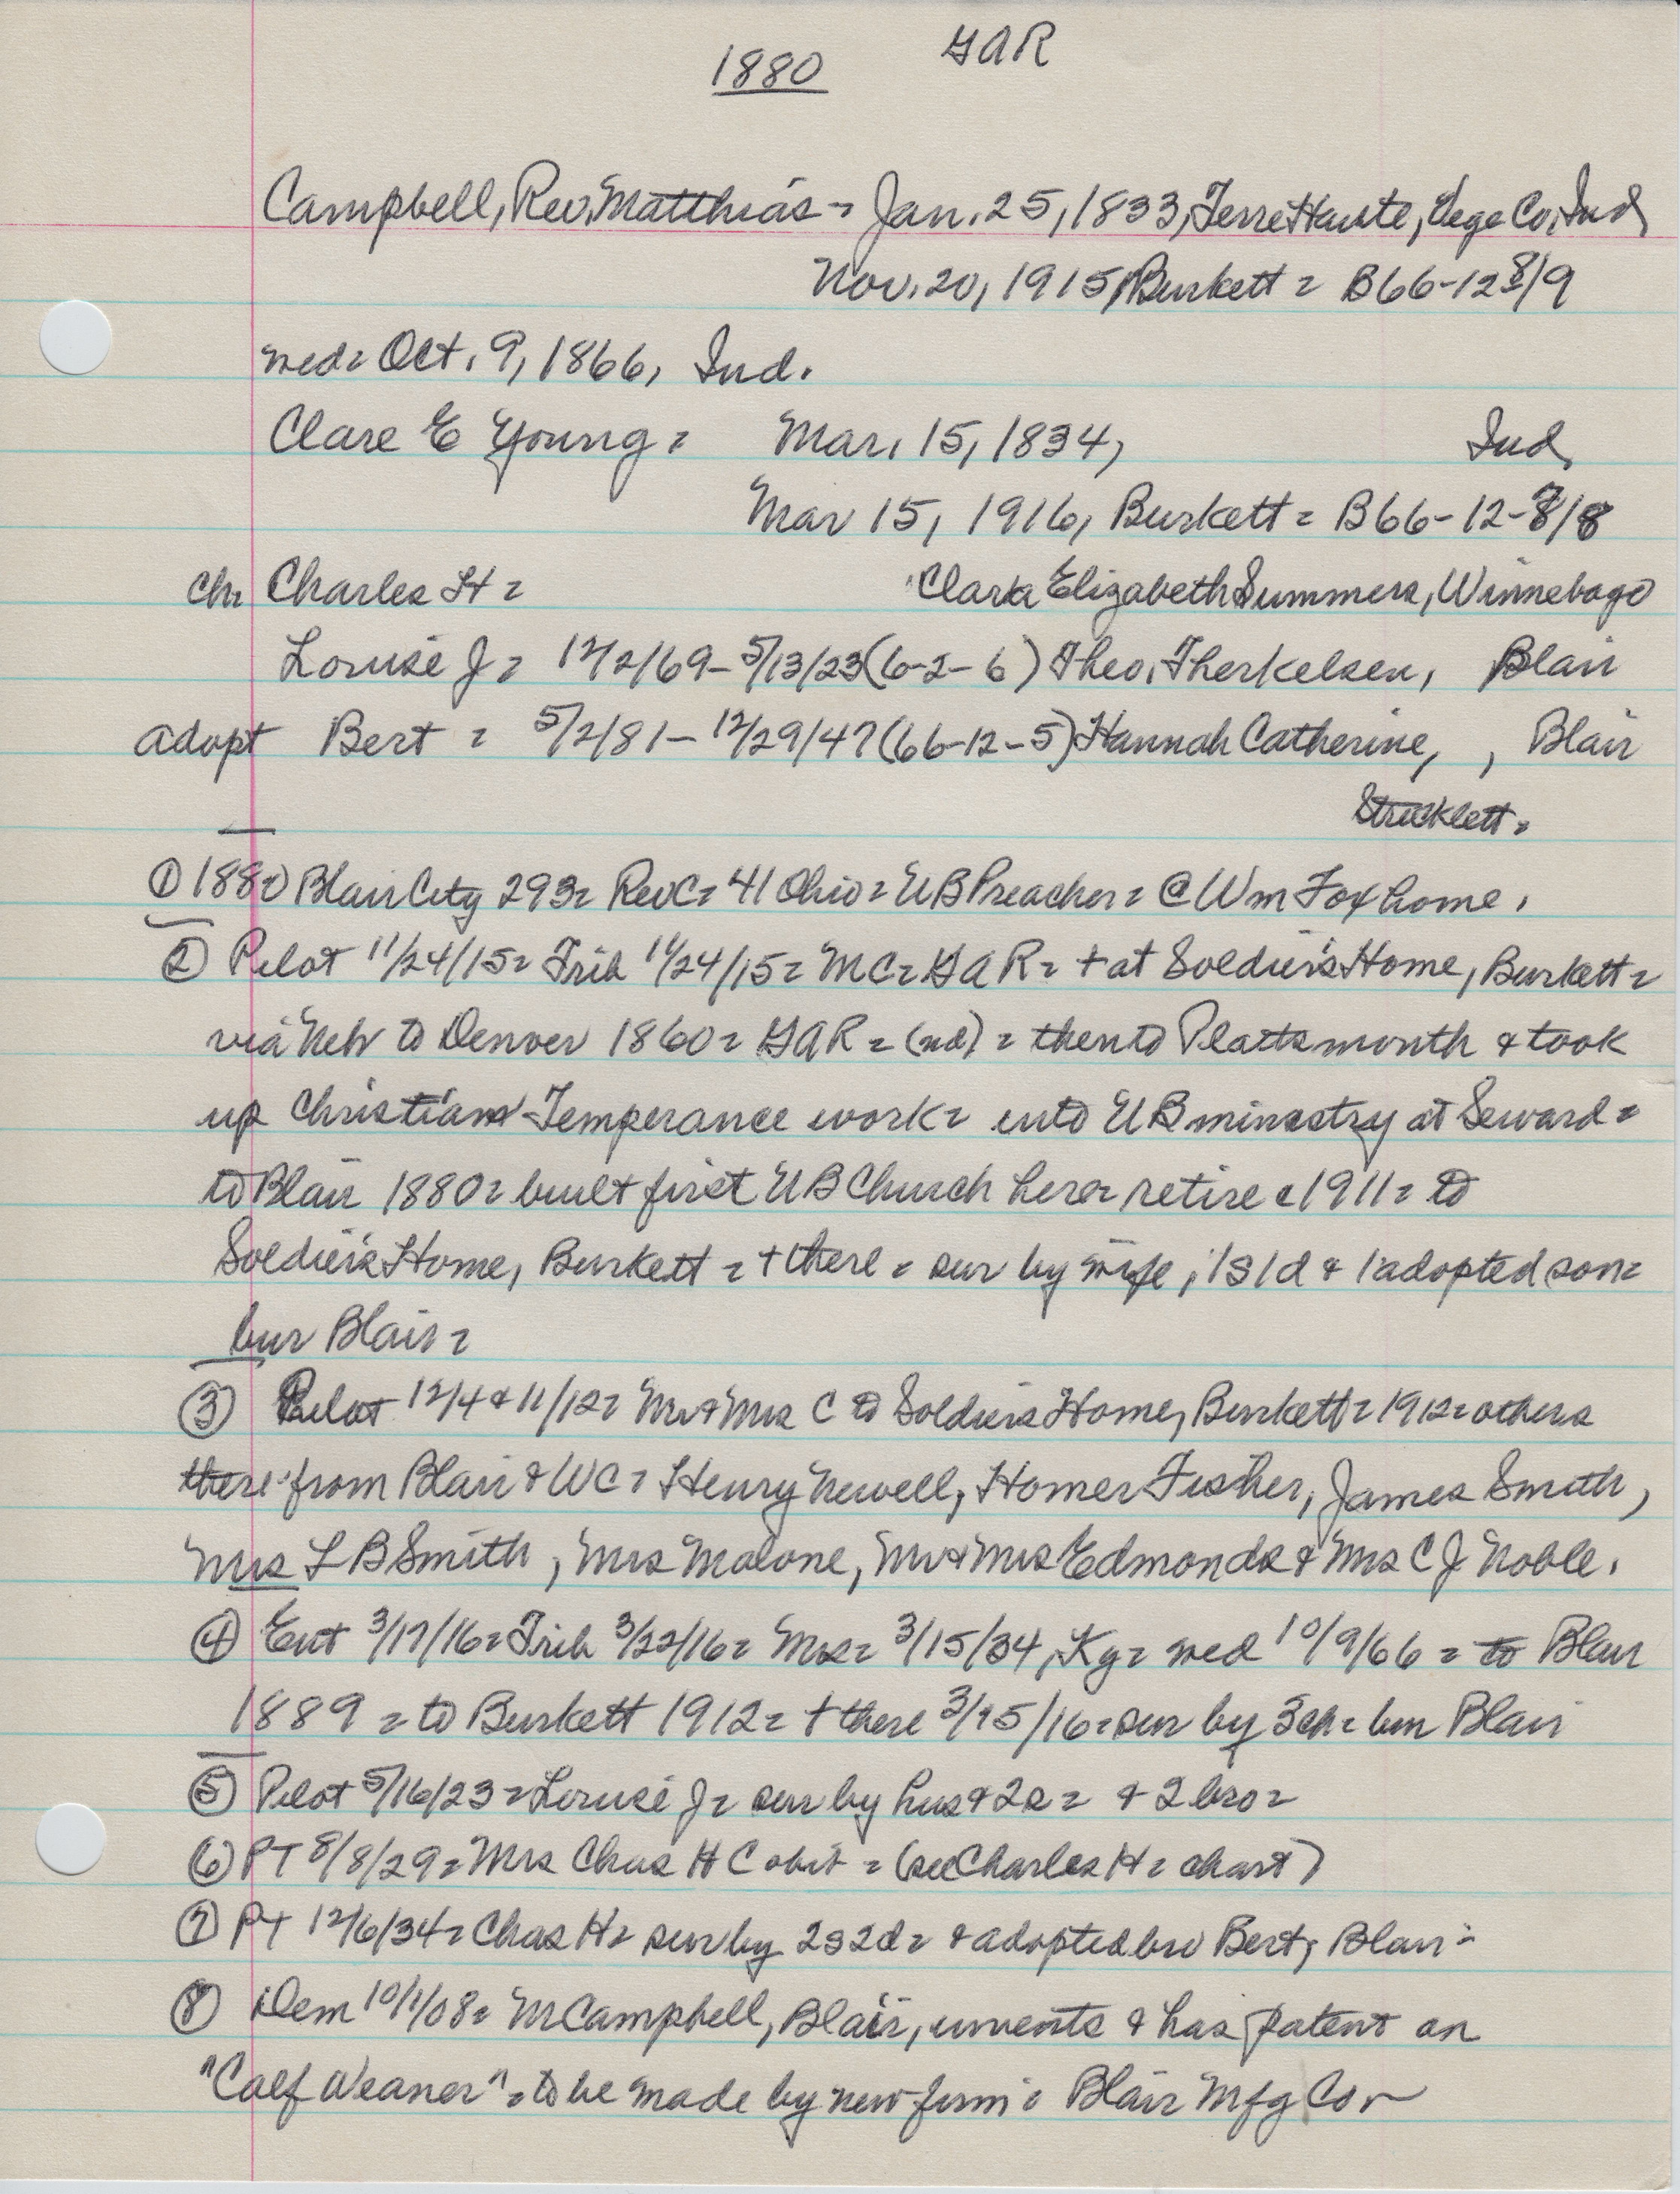 1880 GAR
Campbell, Rev. Matthias = Jan. 25, 1833, Terre Haute, Vego Co, Ind,
Nov. 20, 1915, Burkett = B66-12 8/9
wed = Oct. 9, 1866, Ind.
Clare E Young = Mar. 15, 1834, Ind,
Mar 15, 1916, Burkett = B66-12-8/8
ch = Charles H = Clara Elizabeth Summers, Winnebago
Louise J = 12/2/69-5/13/23 (6-2-6) Theo. Therkelsen, Blair
adopt Bert = 5/2/81-12/29/47 (66-12-5) Hannah Catherine, , Blair
Stricklett =
① 1880 Blair City 293 = Rev C = 41 Ohio = UB Preacher = @ Wm Fox home.
② Pilot 11/24/15 = Trib 11/24/15 = MC = GAR = + at Soldier's Home, Burkett =
via Neb to Denver 1860 = GAR = (nd) = then to Plattsmouth & took
up Christian Temperance work = into UB ministry at Seward =
to Blair 1880 = built first UB Church here = retire c1911 = to
Soldier's Home, Burkett = + there = sur by wife, 1s 1d & 1 adopted son =
bur Blair =
③ Pilot 12/4 & 11/12 = Mr & Mrs C to Soldiers Home, Burkett = 1912 = others
there from Blair & WC = Henry Newell, Homer Fisher, James Smith,
Mrs L B Smith, Mrs Malone, Mr & Mrs Edmonds & Mrs C J Noble.
④ Ent 3/17/16 = Trib 3/22/16 = Mrs = 3/15/34, Ky = wed 10/9/66 = to Blair
1889 = to Burkett 1912 = + there 3/15/16 = sur by 3 ch = bur Blair
⑤ Pilot 5/16/23 = Louise J = sur by hus & 2s = & 2 bro =
⑥ PT 8/8/29 = Mrs Chas H C obit = (see Charles H = chart)
⑦ PT 12/6/34 = Chas H = sur by 2s 2d = & adopted bro Bert, Blair =
⑧ Dem 10/1/08 = M Campbell, Blair, invents & has patent on
"Calf Weaner" = to be made by new firm = Blair Mfg Co =